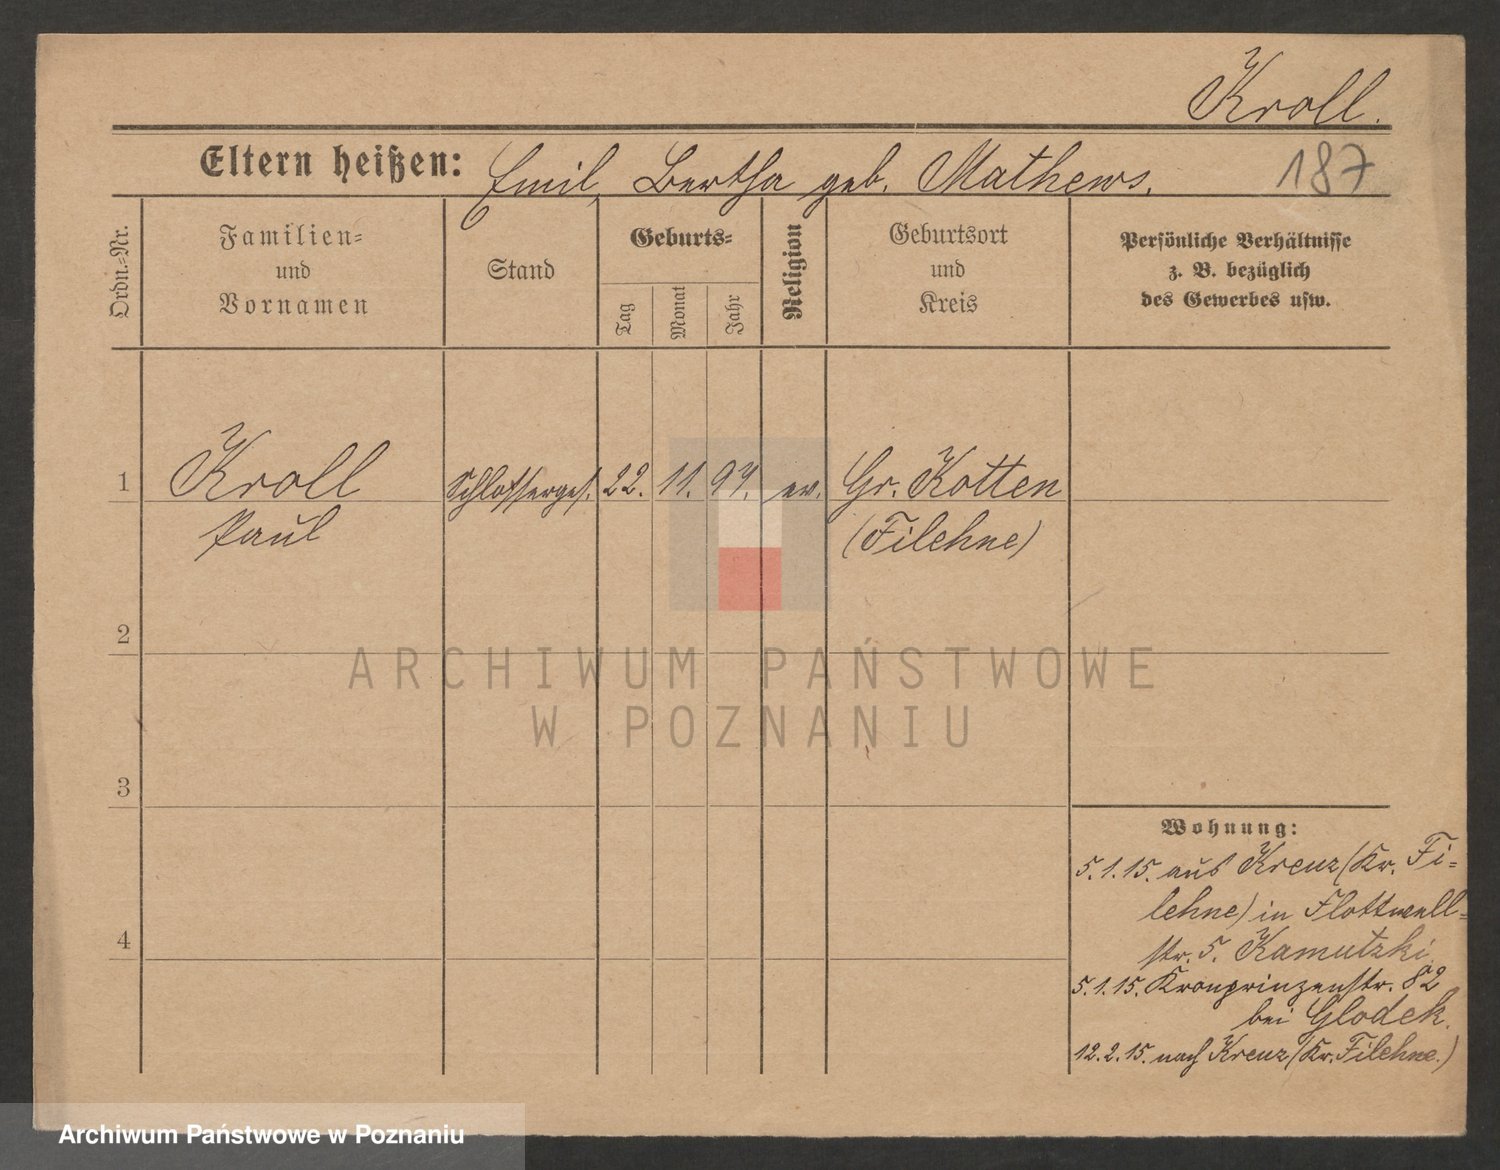 Kroll.
Eltern heißen: Emil, Bertha geb. Mathews.
187
Ordn.-Nr.
Familien-
und
Vornamen
Stand
Geburts-
Tag
Monat
Jahr
Religion
Geburtsort
und
Kreis
Persönliche Verhältnisse
z. B. bezüglich
des Gewerbes usw.
1 Kroll Schlosserges. 22. 11. 97. ev. Gr. Kotten
Paul (Filehne)
2
ARCHIWUM PAŃSTWOWE
W POZNANIU
3
Wohnung:
5.1.15. aus Kreuz (Kr. Fi-
lehne) in Flottwell-
4
str. 5. Kamutzki
5.1.15. Kronprinzenstr. 82
bei Glodek.
12.2.15. nach Kreuz (Kr. Filehne.)
Archiwum Państwowe w Poznaniu